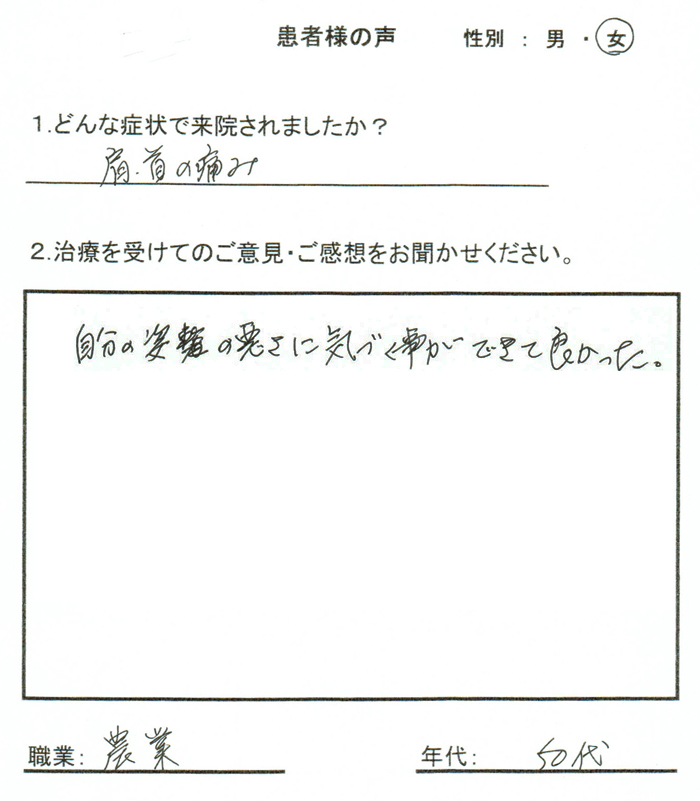 患者様の声 性別 : 男 ・ 女
1.どんな症状で来院されましたか？
肩・首の痛み
2.治療を受けてのご意見・ご感想をお聞かせください。
自分の姿勢の悪さに気づく事ができて良かった。
職業: 農業 年代: 50代